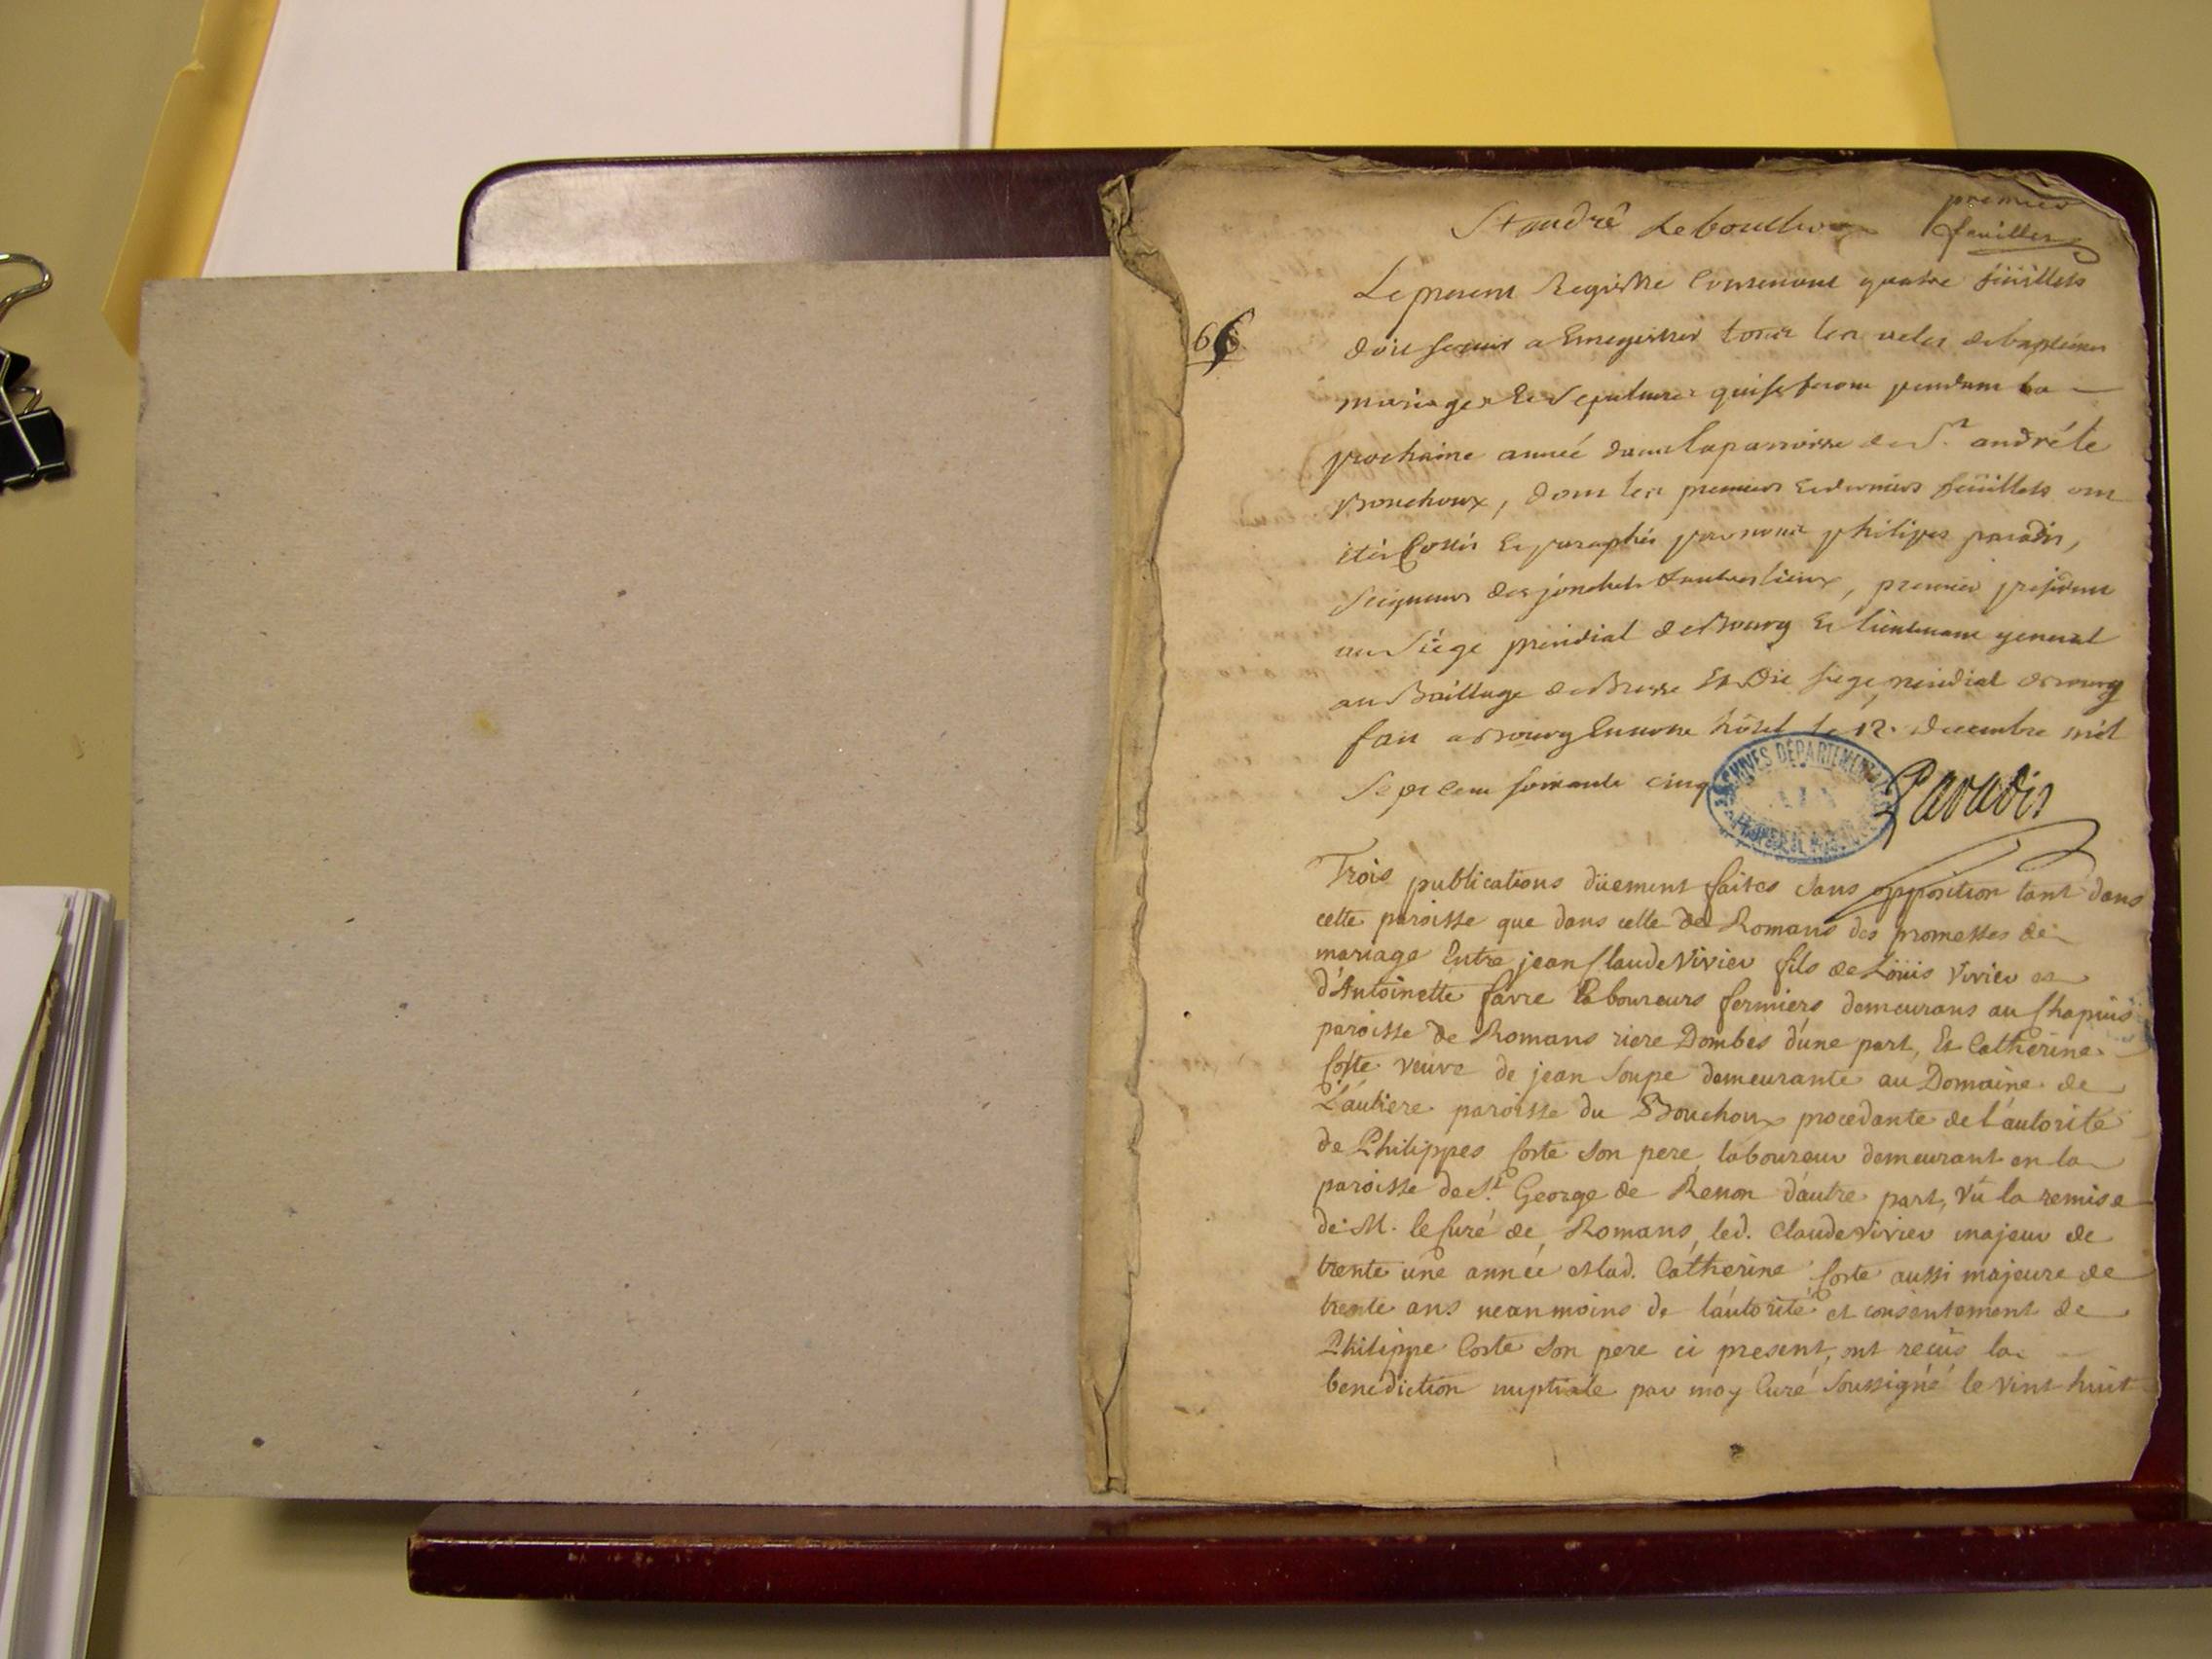 premier
St andré Le bouchoux feuillet
Le present Registre Contenant quatre feüillets
66
doit servir a Enregistrer tous les actes de baptêmes
mariages et Sepultures qui se feront pendant la
prochaine année dans la parroisse de St. andré le
Bouchoux, dont les premiers et derniers feüillets ont
étés Cottés et paraphés par nous philipes paradis,
Seigneur des jonchets & autres lieux, premier president
au Siége presidial de Bourg et lieutenant general
au Baillage de Bresse et dit siege presidial de bourg
fait a Bourg En notre hôtel le 12. decembre mil
Sept cent soixante cinq
ARCHIVES DÉPARTEMENTALES
Paradis
Trois publications düement faites sans opposition tant dans
cette paroisse que dans celle de Romans des promesses de
mariage Entre jean Claude Vivier fils de Loüis Vivier et
d'Antoinette favre laboureurs fermiers demeurans au Chapuis
paroisse de Romans riere Dombes d'une part, Et Catherine
Coste veuve de jean Soupe demeurante au Domaine de
L'autiere paroisse du Bouchoux procedante de l'autorité
de Philippes Coste son pere, laboureur demeurant en la
paroisse de St. George de Renon d'autre part, Vû la remise
de M. le Curé de Romans, led. Claude Vivier majeur de
trente une année et lad. Catherine Coste aussi majeure de
trente ans neanmoins de l'autorité et consentement de
Philippe Coste son pere ci present, ont reçus la
benediction nuptiale par moy Curé Soussigné le vint huit